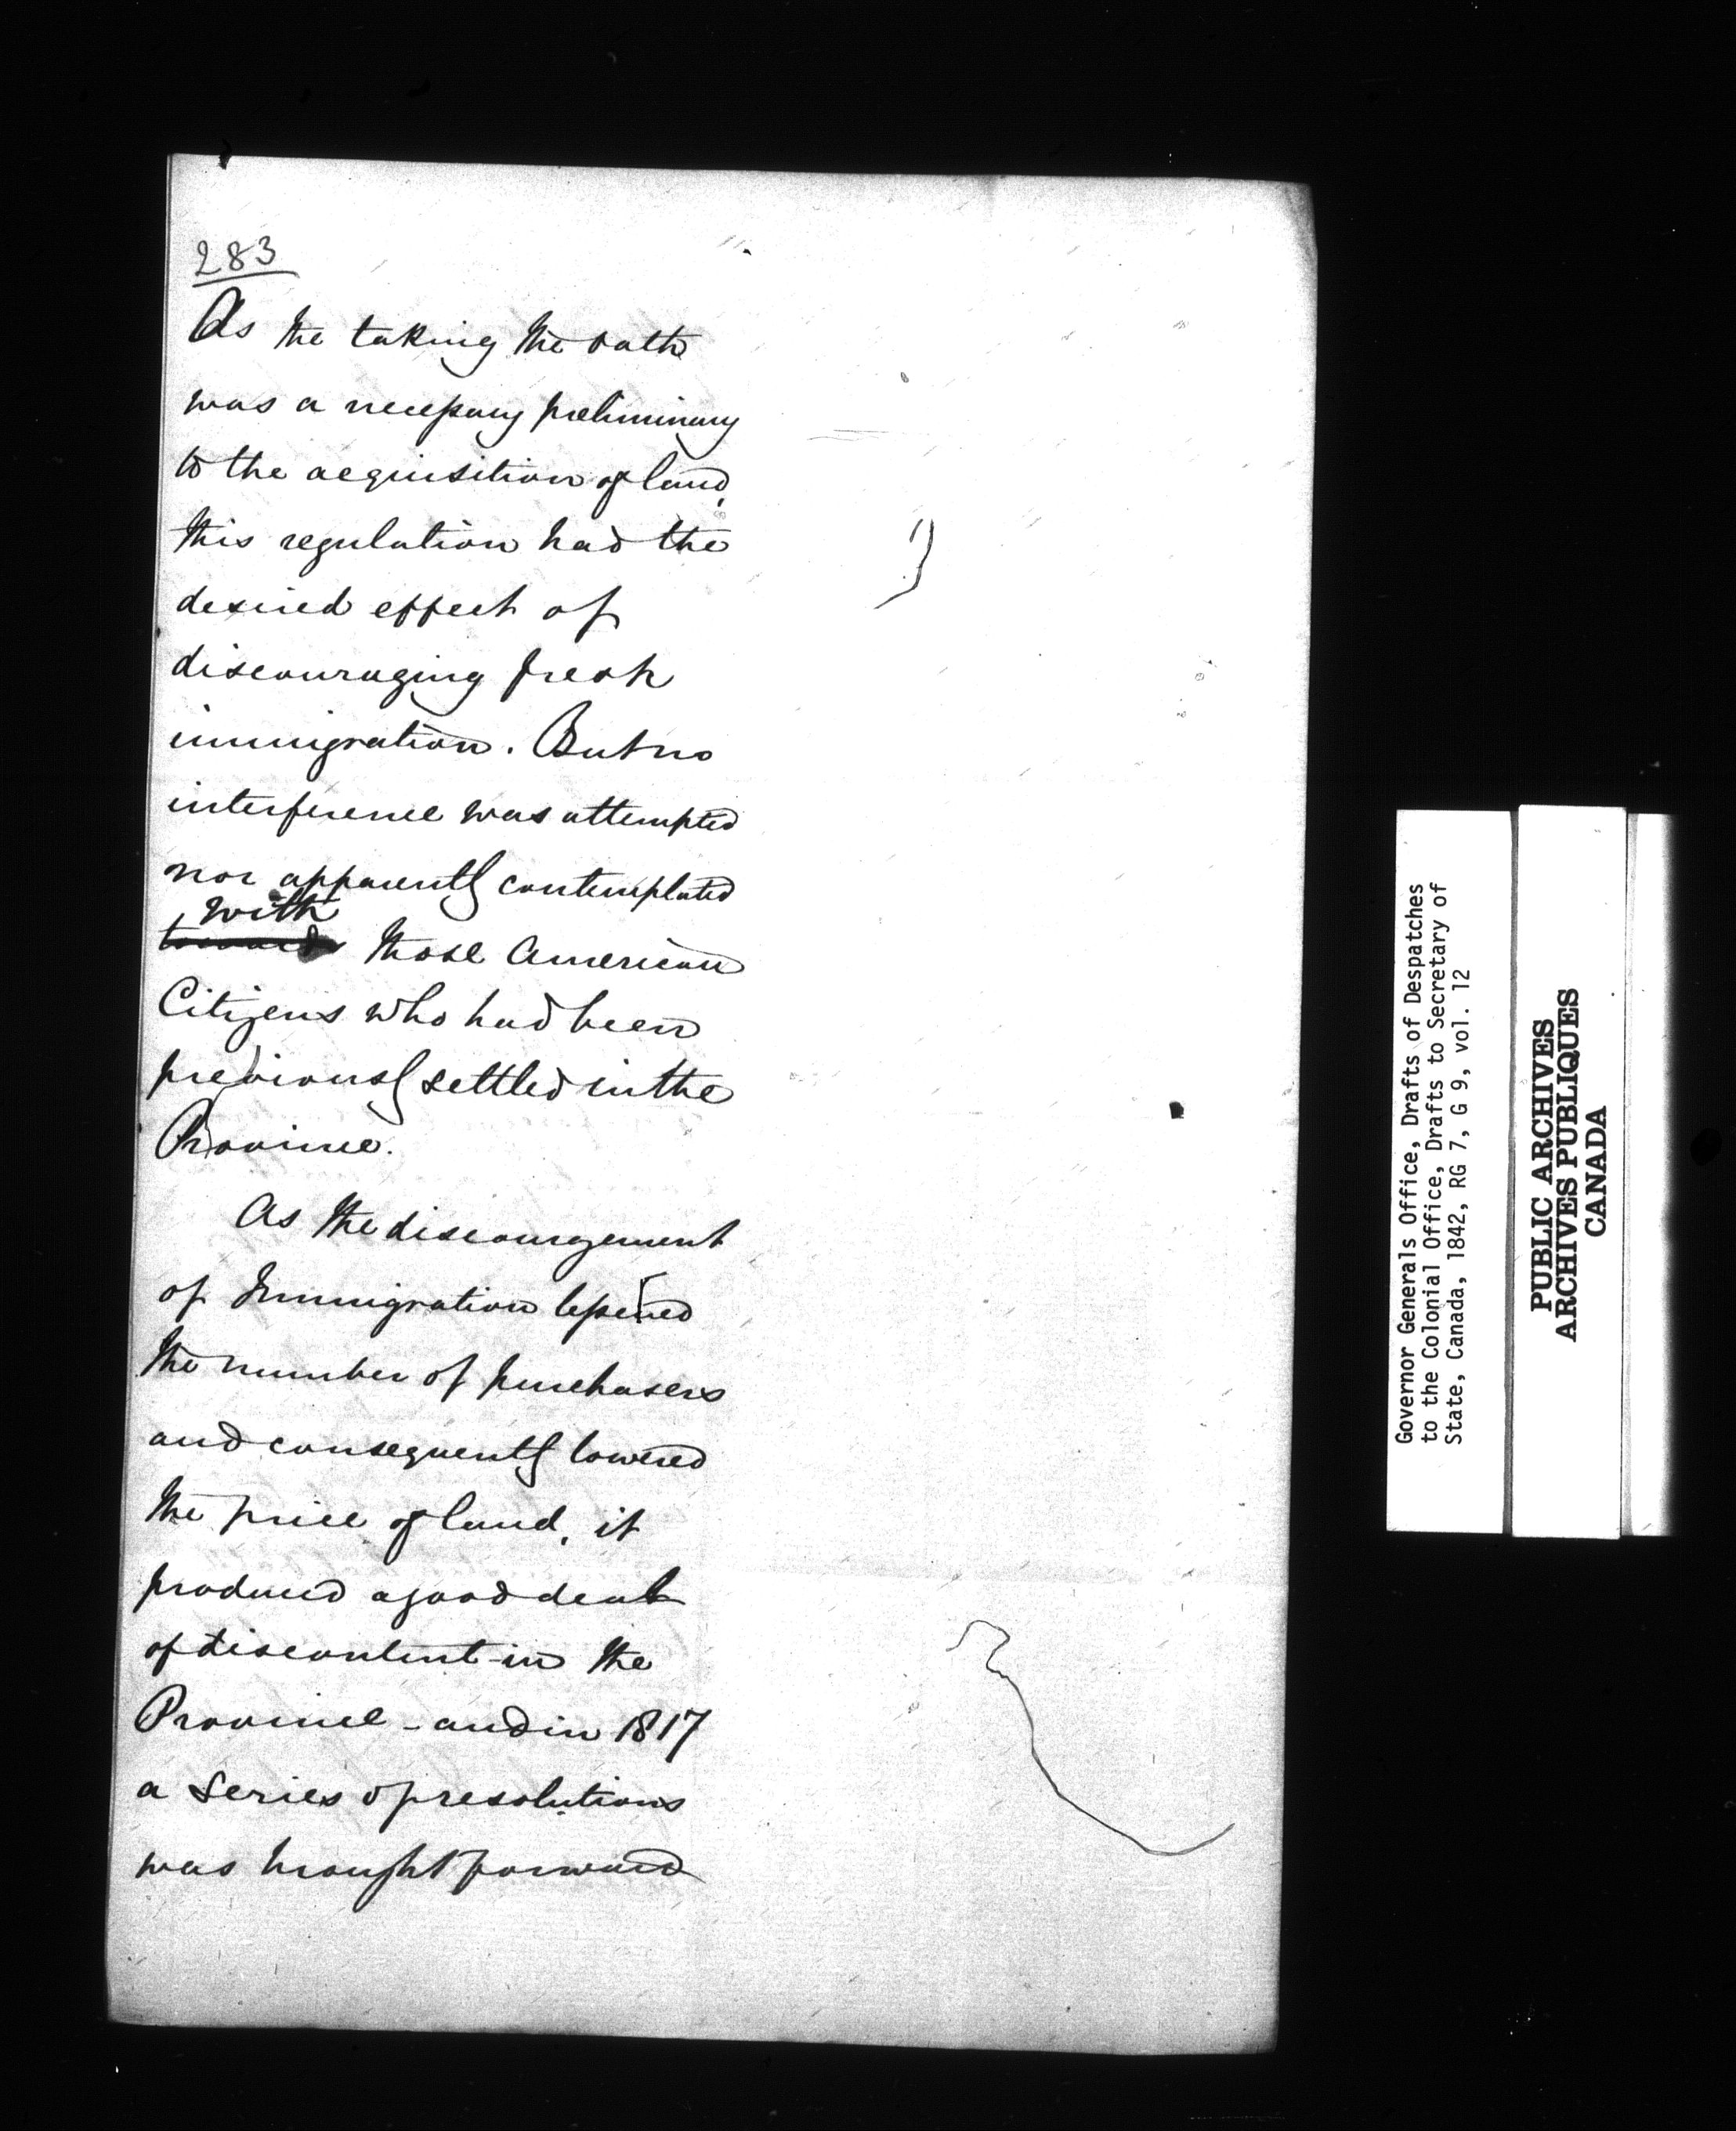 283
As the taking the oath
was a necessary preliminary
to the acquisition of land,
this regulation had the
desired effect of
discouraging fresh
immigration. But no
interference was attempted
nor apparently contemplated
with
towards those American
Citizens who had been
previously settled in the
Province.
As the discouragement
of Immigration lessened
the number of purchasers
and consequently lowered
the price of land, it
produced a good deal
of discontent in the
Province - and in 1817
a series of resolutions
was brought forward
Governor Generals Office, Drafts of Despatches
to the Colonial Office, Drafts to Secretary of
State, Canada, 1842, RG 7, G 9, vol. 12
PUBLIC ARCHIVES
ARCHIVES PUBLIQUES
CANADA